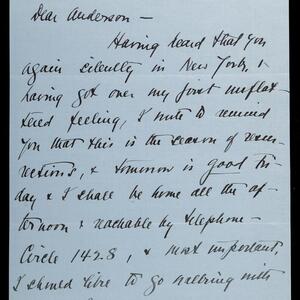 Dear Anderson —
Having heard that you
again silently in New York, &
having got over my first unflat
tered feeling, I write to remind
you that this is the season of resur
rections, & tomorrow is good Fri
day & I shall be home all the af
ternoon & reachable by telephone —
Circle 1428, & most important,
I should like to go walking with